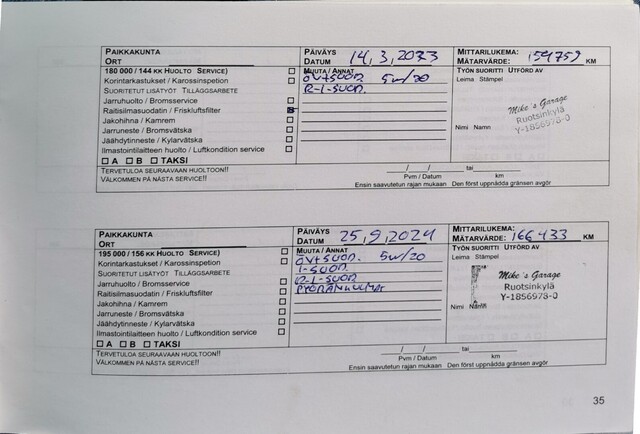 PAIKKAKUNTA
ORT
PÄIVÄYS
DATUM 14,3,2023
MITTARILUKEMA:
MÄTARVÄRDE: 159759 KM
180 000 / 144 KK HUOLTO SERVICE)
Korintarkastukset / Karossinspetion
SUORITETUT LISÄTYÖT TILLÄGGSARBETE
Jarruhuolto / Bromsservice
Raitisilmasuodatin / Friskluftsfilter
Jakohihna / Kamrem
Jarruneste / Bromsvätska
Jäähdytinneste / Kylarvätska
Ilmastointilaitteen huolto / Luftkondition service
A B TAKSI
MUUTA / ANNAT
ÖV+SUOD. 5W/20
R-I-SUOD.
TYÖN SUORITTI UTFÖRD AV
Leima Stämpel
Mike's Garage
Ruotsinkylä
Y-1856978-0
Nimi Namn
TERVETULOA SEURAAVAAN HUOLTOON!!
VÄLKOMMEN PÅ NÄSTA SERVICE!!
/ / tai
Pvm / Datum km
Ensin saavutetun rajan mukaan Den först uppnådda gränsen avgör
PAIKKAKUNTA
ORT
PÄIVÄYS
DATUM 25,9,2024
MITTARILUKEMA:
MÄTARVÄRDE: 166433 KM
195 000 / 156 KK HUOLTO SERVICE)
Korintarkastukset / Karossinspetion
SUORITETUT LISÄTYÖT TILLÄGGSARBETE
Jarruhuolto / Bromsservice
Raitisilmasuodatin / Friskluftsfilter
Jakohihna / Kamrem
Jarruneste / Bromsvätska
Jäähdytinneste / Kylarvätska
Ilmastointilaitteen huolto / Luftkondition service
A B TAKSI
MUUTA / ANNAT
ÖV+SUOD. 5W/20
I-SUOD.
R-I-SUOD
PYÖRÄNKULMAT
TYÖN SUORITTI UTFÖRD AV
Leima Stämpel
Mike's Garage
Ruotsinkylä
Y-1856978-0
Nimi Namn
TERVETULOA SEURAAVAAN HUOLTOON!!
VÄLKOMMEN PÅ NÄSTA SERVICE!!
/ / tai
Pvm / Datum km
Ensin saavutetun rajan mukaan Den först uppnådda gränsen avgör
35